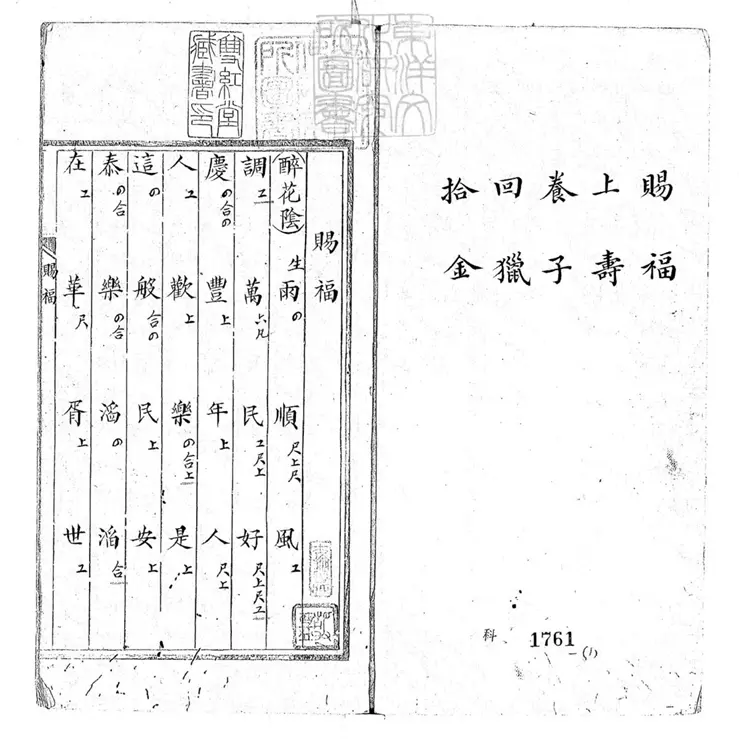 賜福
上壽
養子
回獵
拾金
科 1761 -(1)
東洋文化研究所圖書
雙紅堂藏書印
賜福
醉花陰 生 雨の 順尺上尺 風工
調工 萬六凡 民工尺上 好尺上尺工
慶の合の 豐上 年上 人尺上
人工 歡上 樂の合上 是上
這の 般合の 民上 安上
泰の合 樂の合 滔の 滔合
在工 華尺 胥上 世工
賜福